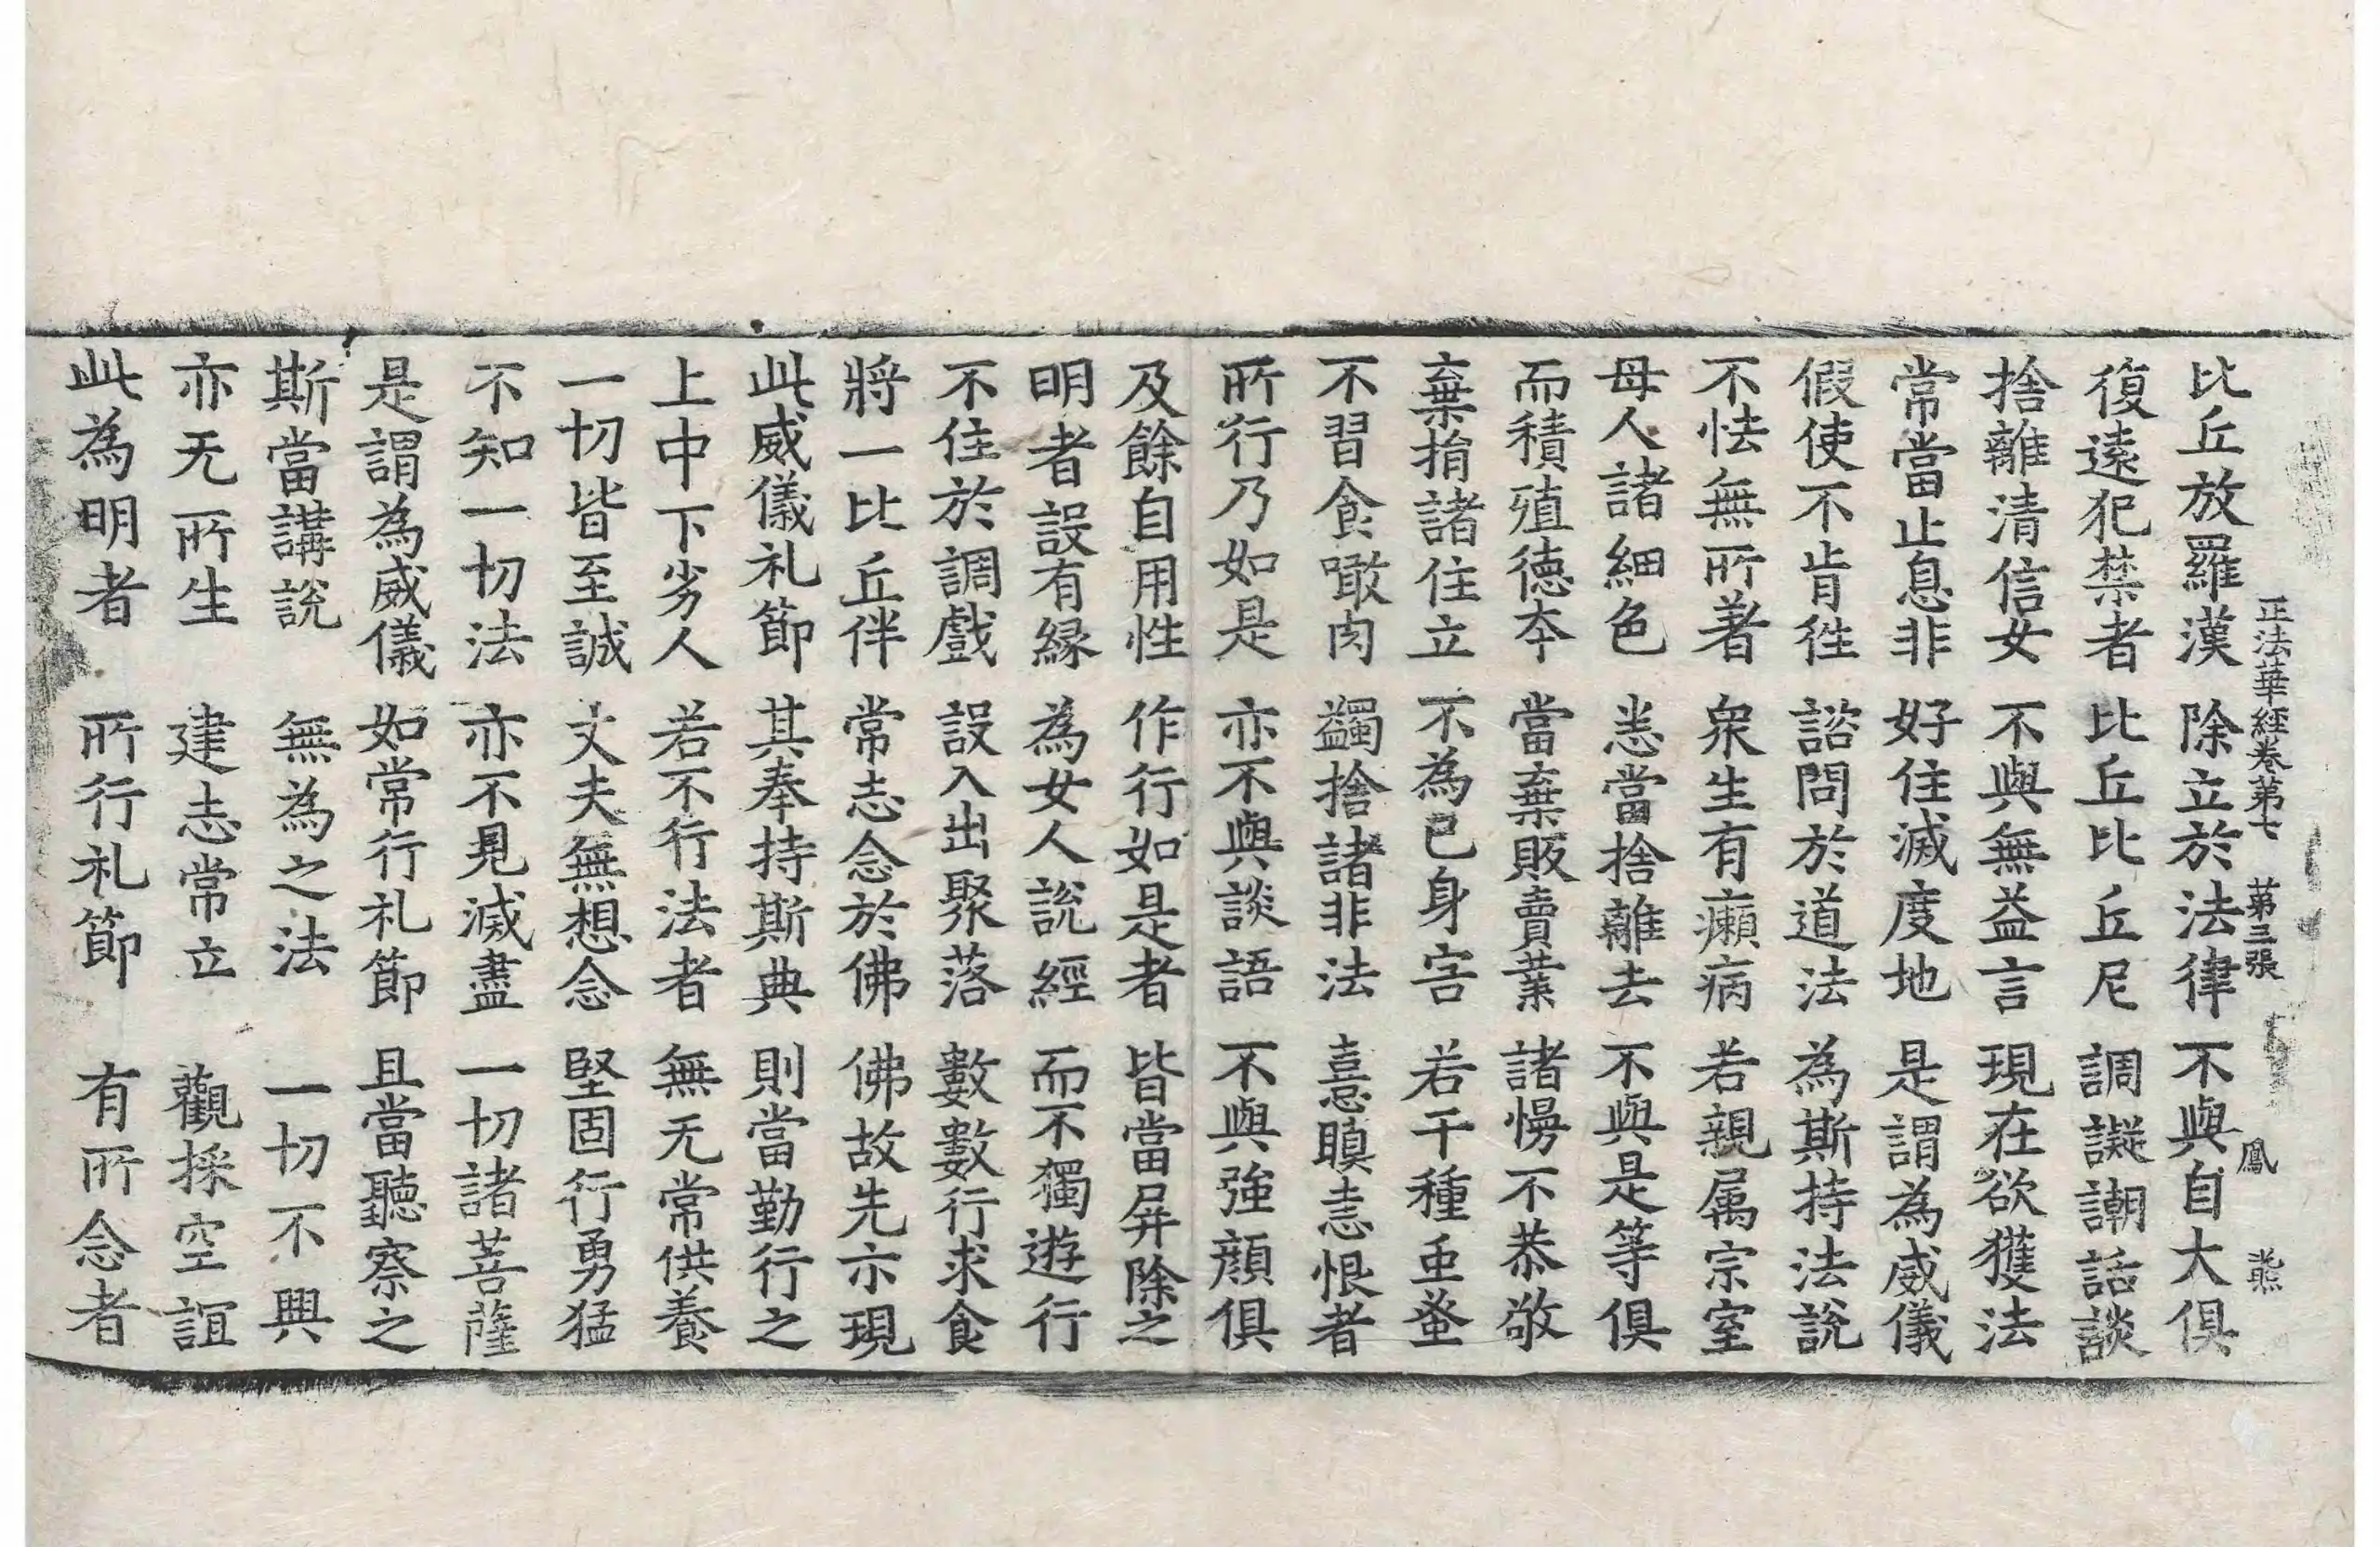 正法華經卷第七 第三張 鳳 燕
比丘放羅漢 除立於法律 不與自大俱
復遠犯禁者 比丘比丘尼 調譺謿話談
捨離清信女 不與無益言 現在欲獲法
常當止息非 好住滅度地 是謂為威儀
假使不肯往 諮問於道法 為斯持法說
不怯無所著 衆生有癩病 若親属宗室
母人諸細色 恙當捨離去 不與是等俱
而積殖德本 當棄販賣業 諸慢不恭敬
棄捐諸住立 不為己身害 若干種虫蚤
不習食噉肉 蠲捨諸非法 憙瞋恚恨者
所行乃如是 亦不與談語 不與強顔俱
及餘自用性 作行如是者 皆當屏除之
明者設有緣 為女人說經 而不獨遊行
不住於調戲 設入出聚落 數數行求食
將一比丘伴 常志念於佛 佛故先示現
此威儀礼節 其奉持斯典 則當勤行之
上中下劣人 若不行法者 無无常供養
一切皆至誠 丈夫無想念 堅固行勇猛
不知一切法 亦不見滅盡 一切諸菩薩
是謂為威儀 如常行礼節 且當聽察之
斯當講說 無為之法 一切不興
亦无所生 建志常立 觀採空誼
此為明者 所行礼節 有所念者